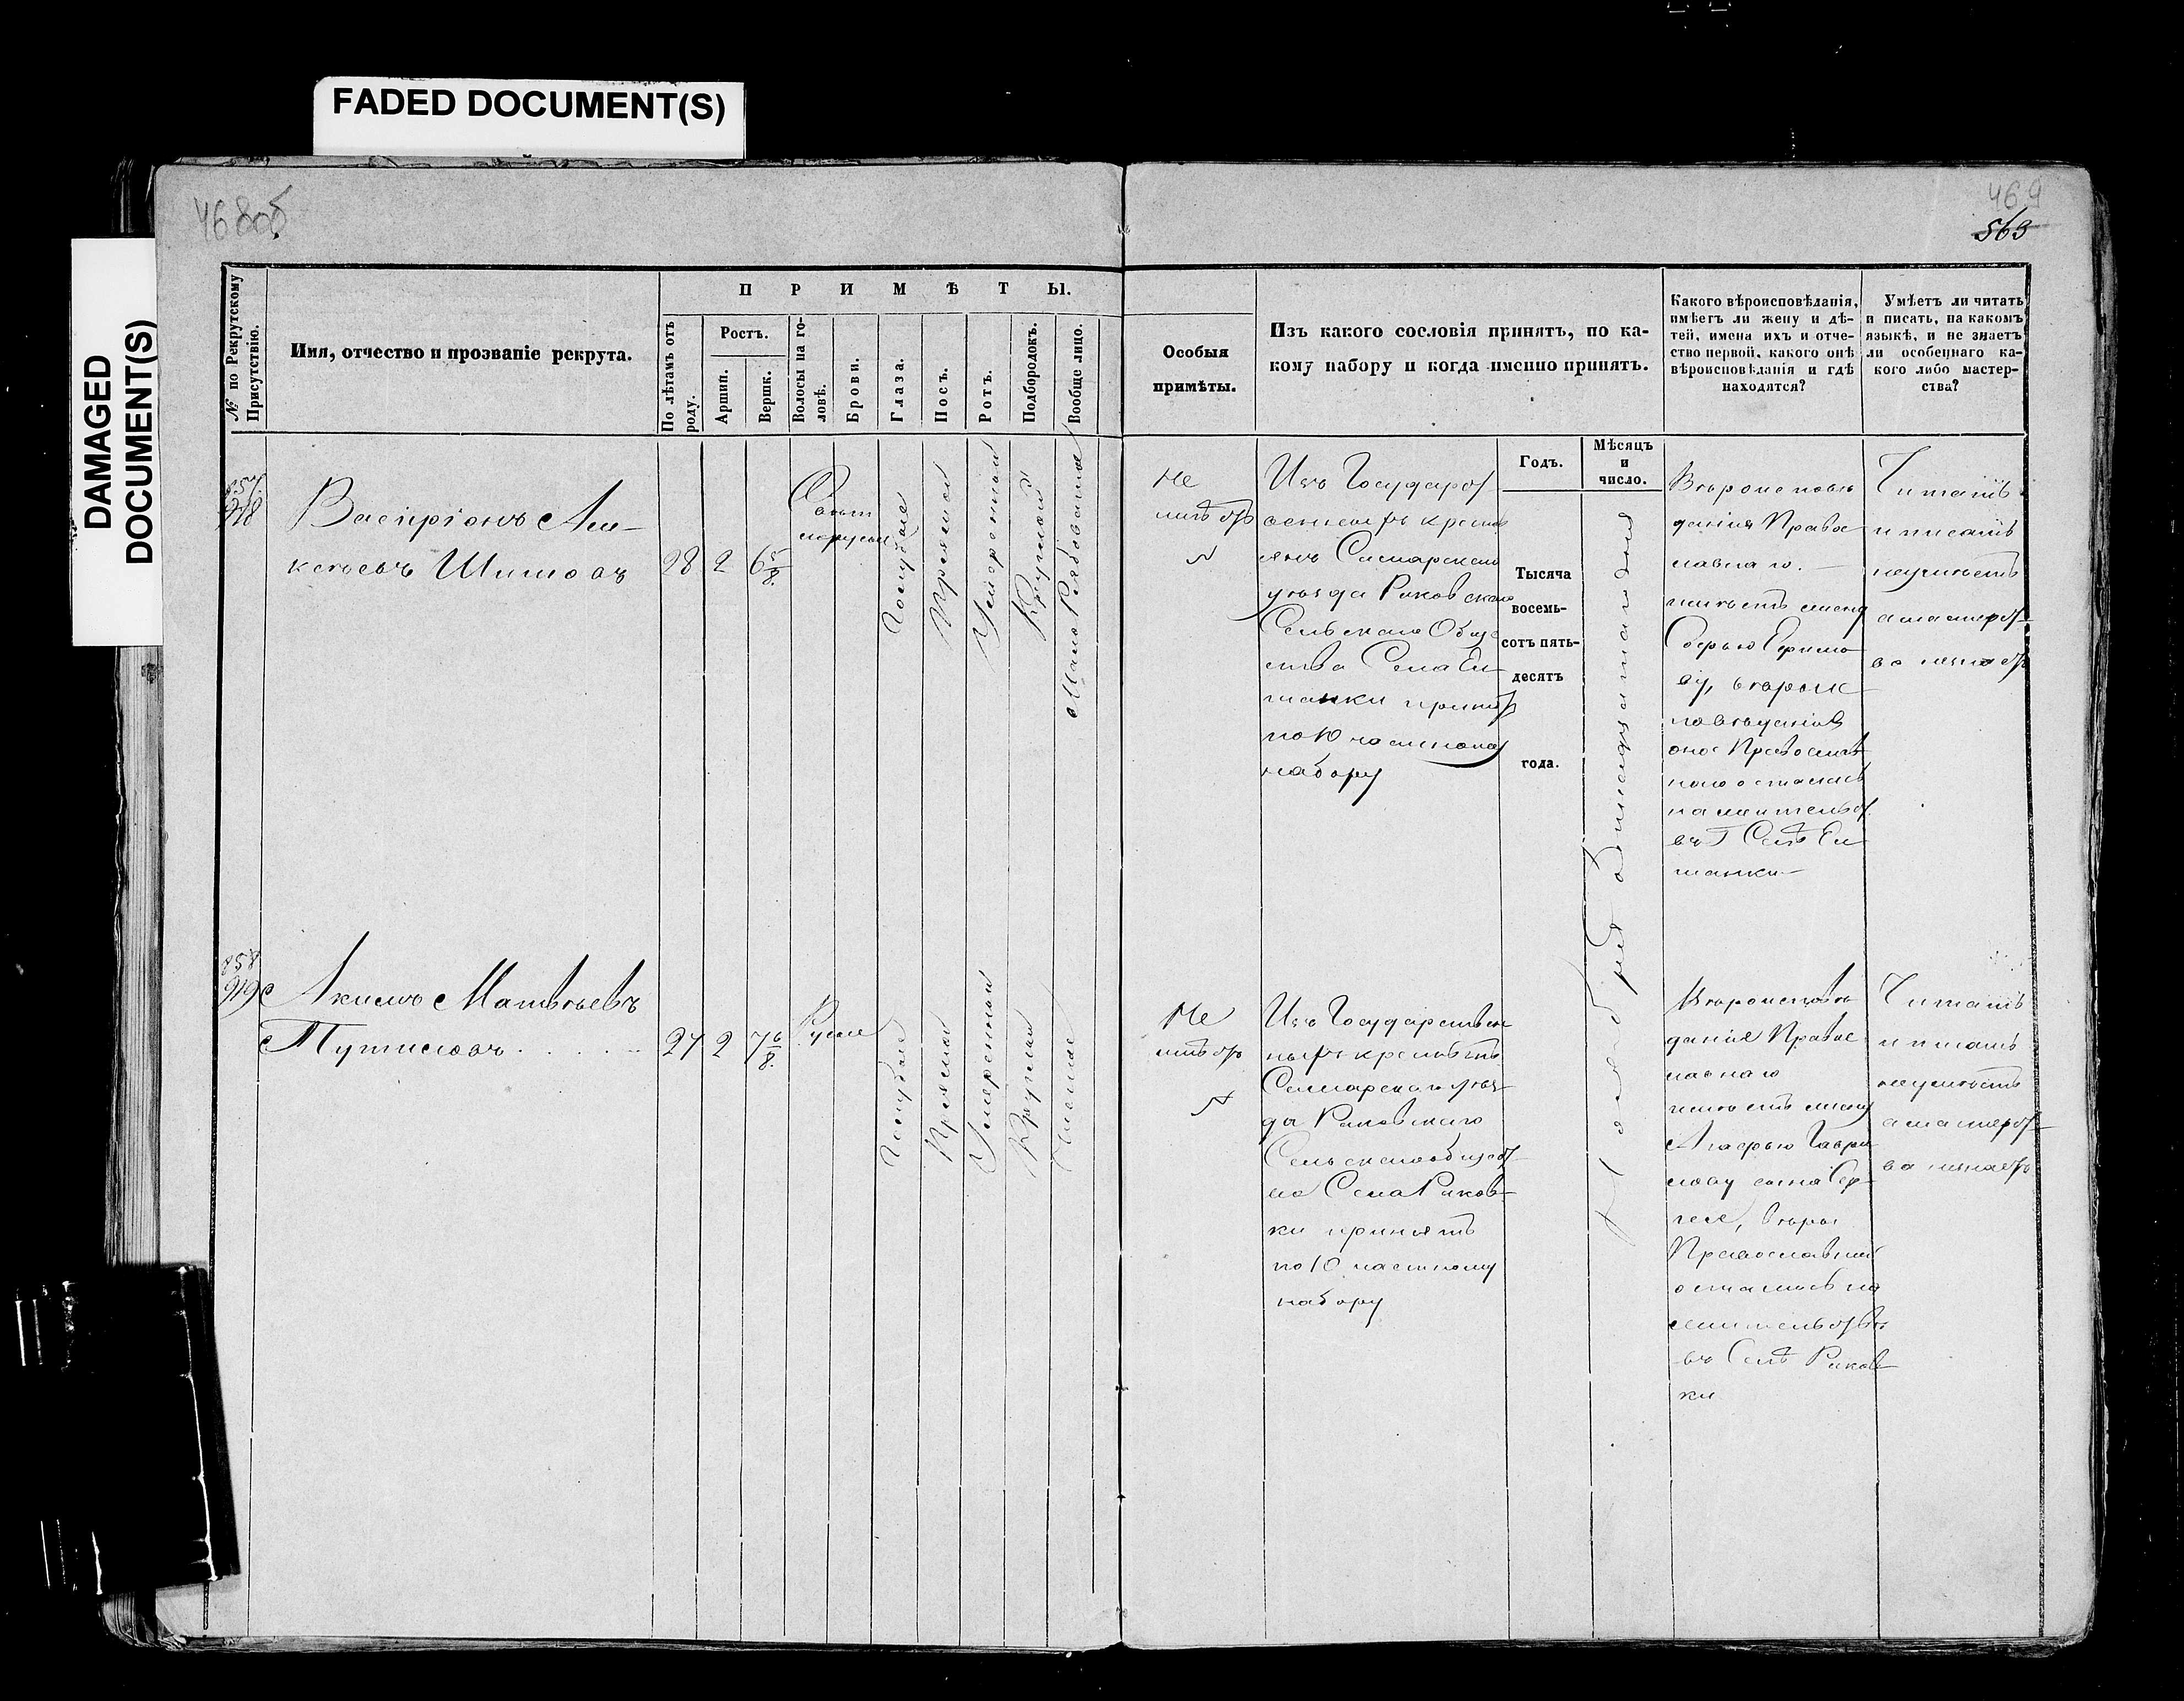 FADED DOCUMENT(S)
DAMAGED
DOCUMENT(S)
468об
469
563
№ по Рекрутскому
Присутствію.
Имя, отчество и прозваніе рекрута.
ПРИМѢТЫ.
По лѣтамъ отъ
роду.
Ростъ.
Аршин.
Вершк.
Волосы на го-
ловѣ.
Брови.
Глаза.
Носъ.
Ротъ.
Подбородокъ.
Вообще лицо.
Особыя
примѣты.
Изъ какого сословія принятъ, по ка-
кому набору и когда именно принятъ.
Какого вѣроисповѣданія,
имѣетъ ли жену и дѣ-
тей, имена ихъ и отче-
ство первой, какого онѣ
вѣроисповѣданія и гдѣ
находятся?
Умѣетъ ли читать
и писать, на какомъ
языкѣ, и не знаетъ
ли особеннаго ка-
кого либо мастер-
ства?
Годъ.
Мѣсяцъ
и
число.
Тысяча
восемь-
сотъ пять-
десятъ
года.
857.
918
Шишовъ
28 2 6 5/8.
Голубые
Прямой
Умѣренный
Круглый
Мало Рябоватое
Не
имѣетъ
Изъ Государст
веныхъ кресть
янъ Самарскаго
уѣзда Раковскаго
Сельскаго Обще
ства Села Ел
шанки принятъ
по 10 частному
набору
Вѣроисповѣ
данія Право
славнаго.
имѣетъ жену
Софью Ефимо
ву, вѣроис
повѣданія
она Православ
наго осталась
на жительст.
въ Селѣ Ел
шанки
Читать
и писать
неумѣетъ
а мастерст-
ва незнаетъ
858
919
Акимъ Матвѣевъ
27 2 7 6/8.
Русые
Голубые
Прямой
Умѣренный
Круглый
Чистое
Не
имѣетъ
Изъ Государствен
ныхъ крестьянъ
Самарскаго уѣз
да Раковскаго
Сельскаго общест
ва Села Раков-
ки принятъ
по 10 частному
набору
Вѣроисповѣ
данія Право
славнаго
имѣетъ жену
Агафью Гаври
лову сына Сер-
гея, вѣры
Православной
остались на
жительствѣ
въ Селѣ Раков
ки
Читать
и писать
неумѣетъ
а мастерст-
ва незнаетъ